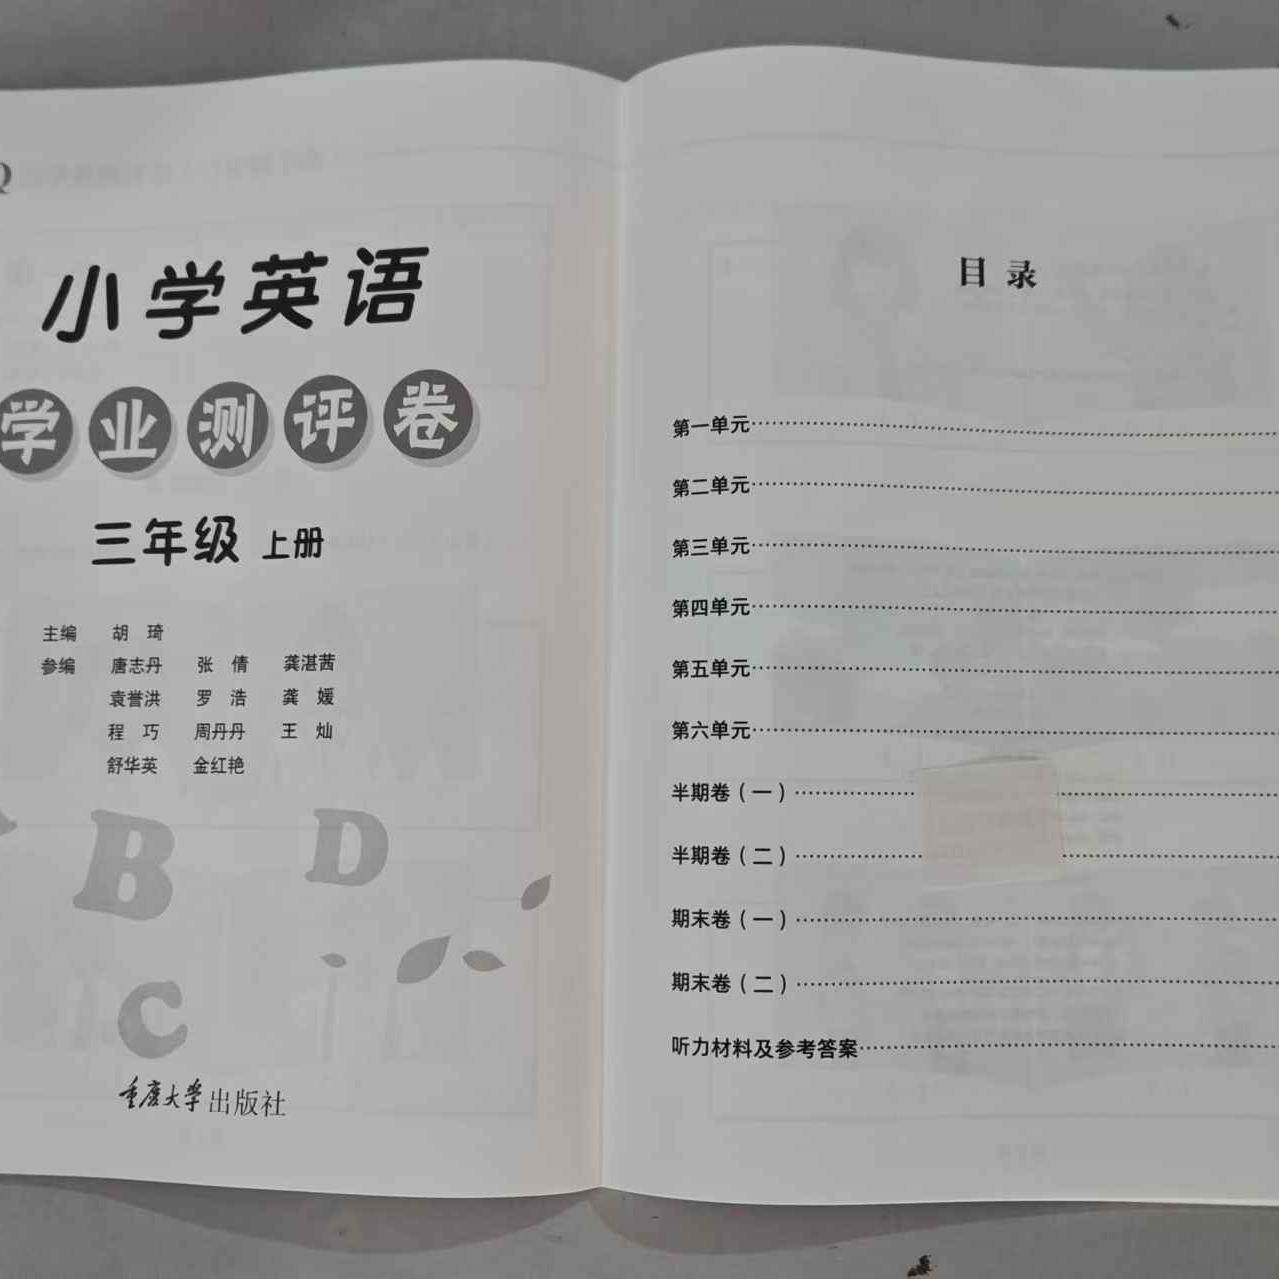 小学英语
学业测评卷
三年级 上册
主编 胡 琦
参编 唐志丹 张 倩 龚湛茜
袁誉洪 罗 浩 龚 媛
程 巧 周丹丹 王 灿
舒华英 金红艳
B D
C
重庆大学出版社
目录
第一单元
第二单元
第三单元
第四单元
第五单元
第六单元
半期卷（一）
半期卷（二）
期末卷（一）
期末卷（二）
听力材料及参考答案